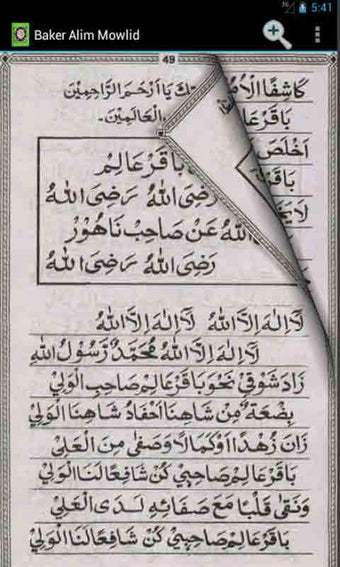 5:41
Baker Alim Mowlid
49
كَاشِفًا الْاُمُ ـكَ يَا اَرْحَمَ الرَّاحِمِيْنَ
بَاقِرْ عَا الْعَالَمِيْنَ۔
اَخْلَصَ
بَاقِرْ
بَاقِرْ عَالِمْ
رَضِىَ اللهُ رَضِىَ اللهُ
اللهُ عَنْ صَاحِبْ نَاهُوْرْ
رَضِىَ اللهُ رَضِىَ اللهُ
لَآ اِلٰهَ اِلَّا اللهُ لَآ اِلٰهَ اِلَّا اللهُ
لَآ اِلٰهَ اِلَّا اللهُ مُحَمَّدٌ رَّسُوْلُ اللهِ
زَادَ شَوْقِيْ نَحْوَ بَاقِرْ عَالِمْ صَاحِبِ الْوَلِيْ
بِضْعَةٌ مِنْ شَاهِنَا اَحْفَادُ شَاهِنَا الْوَلِيْ
زَانَ زُهْدًا اَوْ كَمَالًا وَصَفٰى مِنَ الْعَلِيْ
بَاقِرْ عَالِمْ صَاحِبِيْ كُنْ شَافِعًا لَنَا الْوَلِيْ
وَنَقٰى قَلْبًا مَعَ صَفَائِهِ لَدَى الْعَلِيْ
بَاقِرْ عَالِمْ صَاحِبِيْ كُنْ شَافِعًا لَنَا الْوَلِيْ